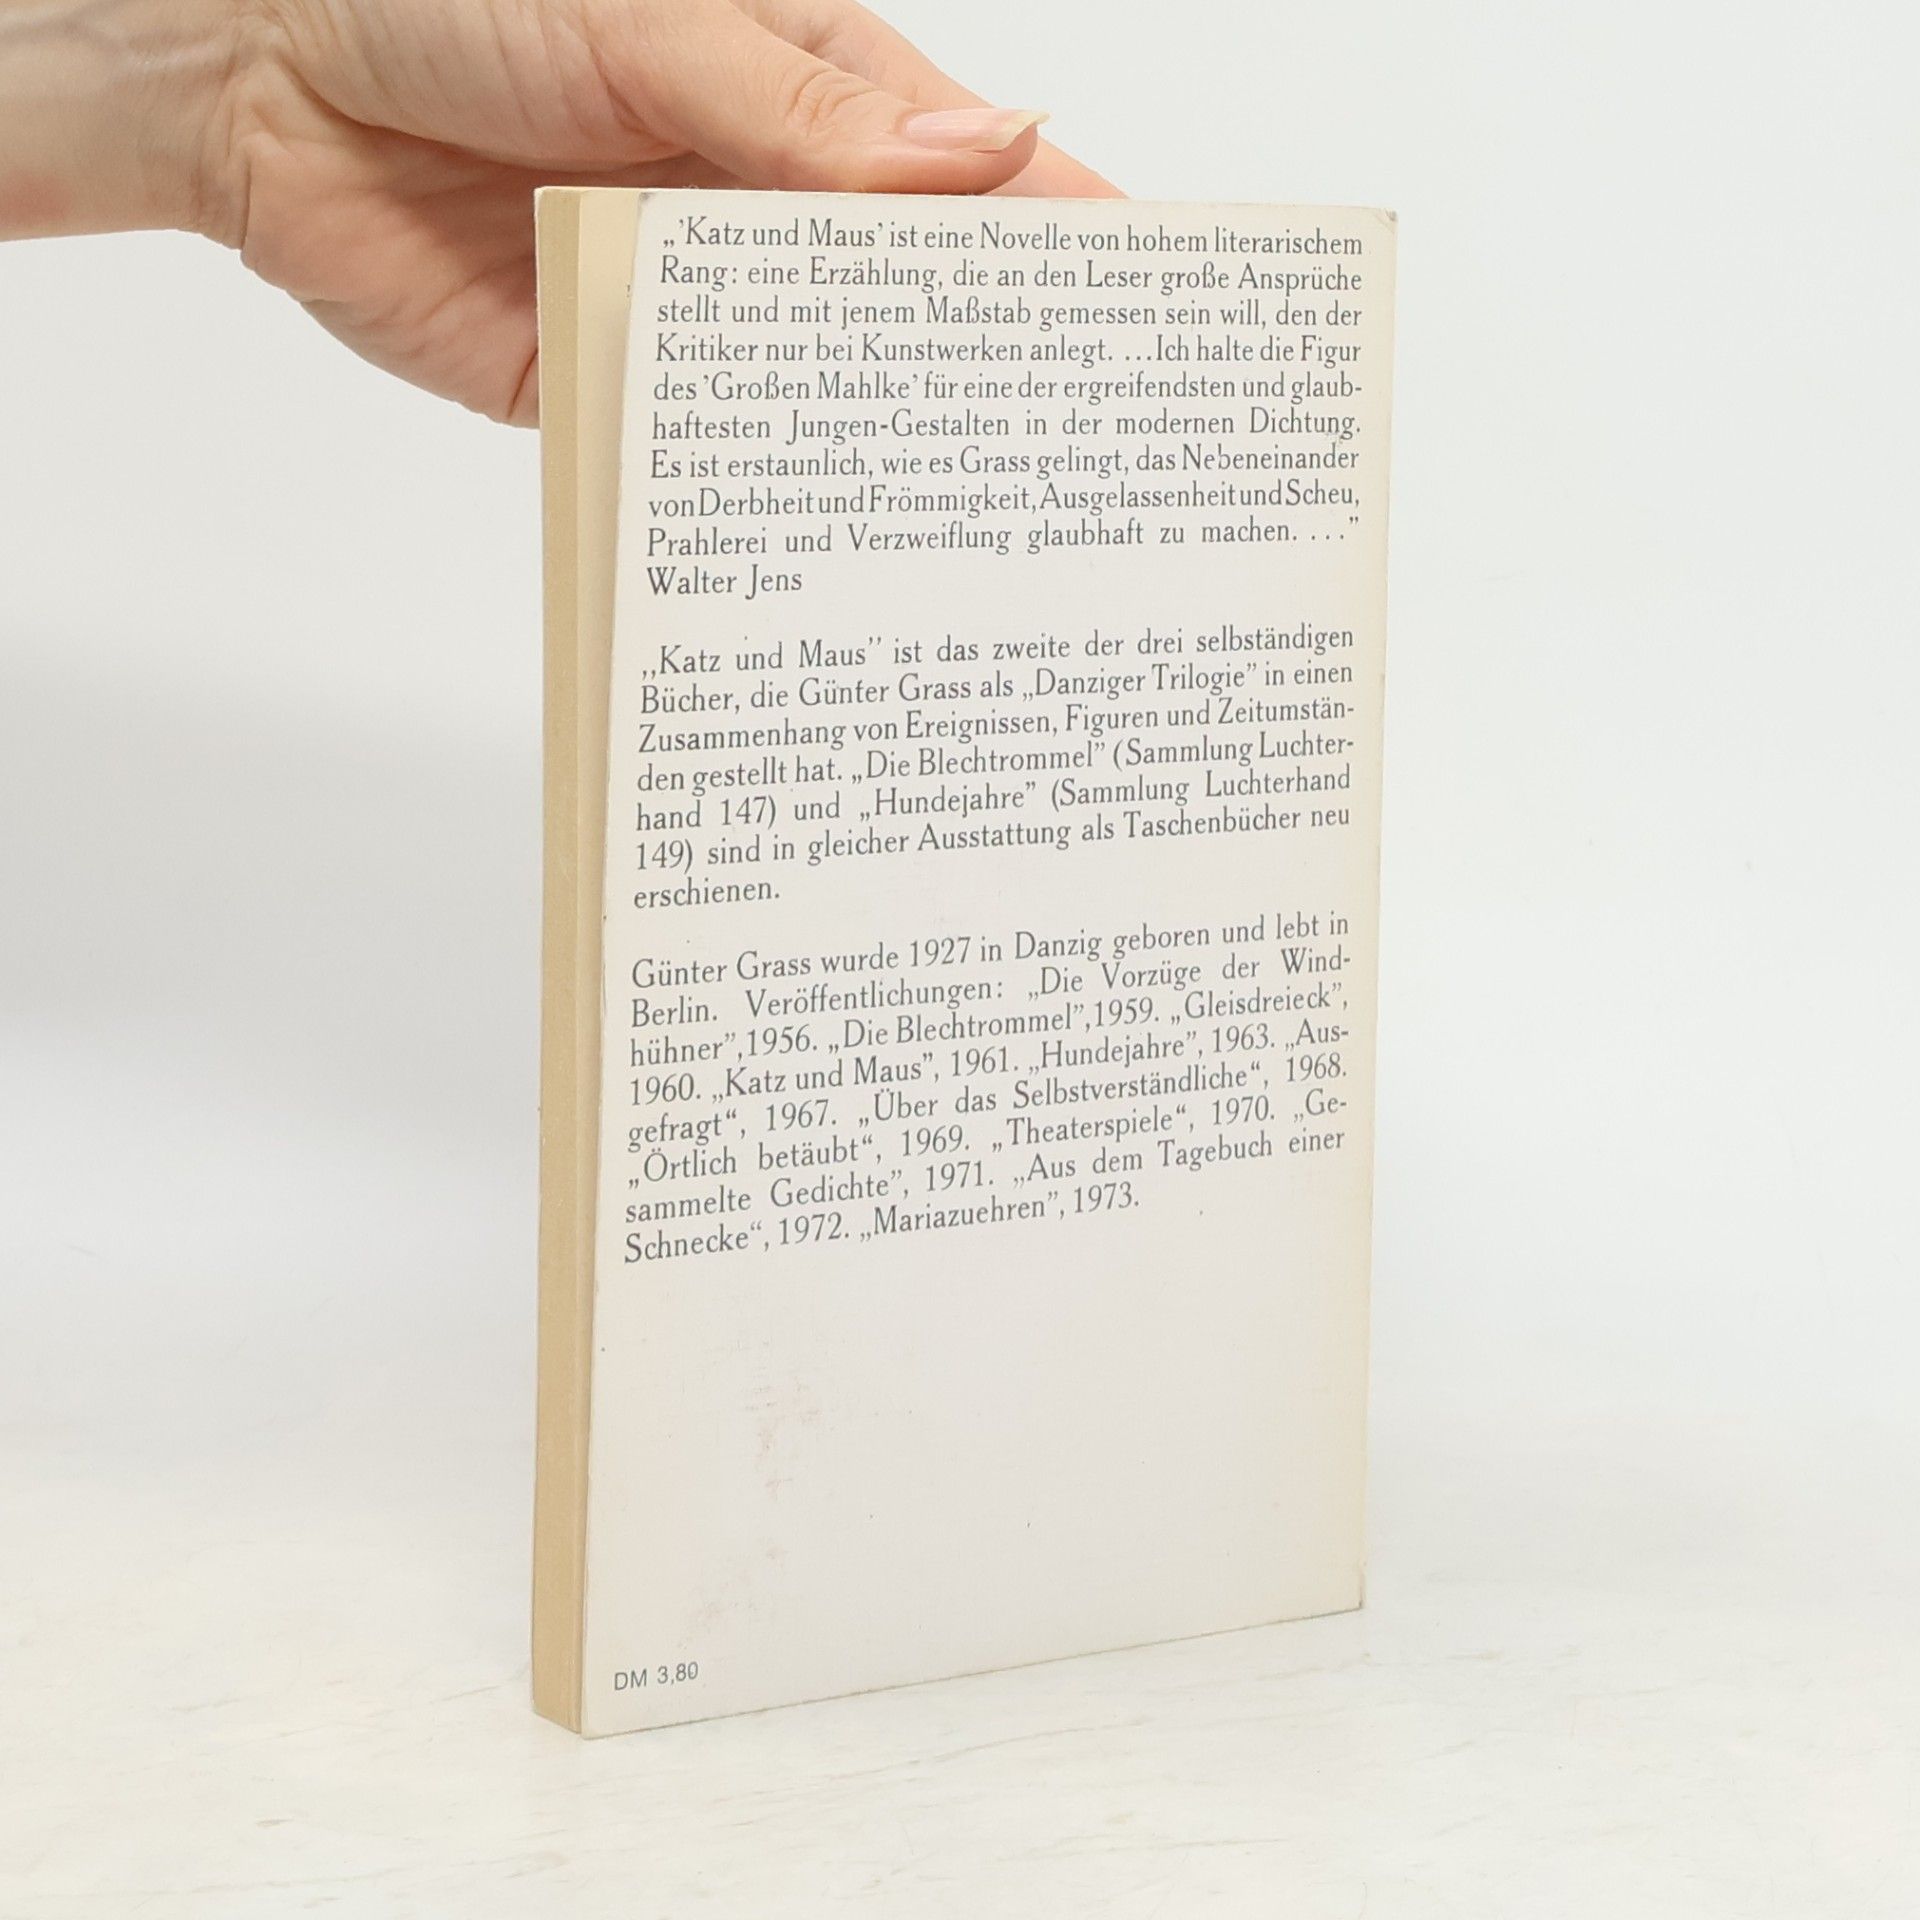 „'Katz und Maus' ist eine Novelle von hohem literarischem
Rang: eine Erzählung, die an den Leser große Ansprüche
stellt und mit jenem Maßstab gemessen sein will, den der
Kritiker nur bei Kunstwerken anlegt. ...Ich halte die Figur
des 'Großen Mahlke' für eine der ergreifendsten und glaub-
haftesten Jungen-Gestalten in der modernen Dichtung.
Es ist erstaunlich, wie es Grass gelingt, das Nebeneinander
von Derbheit und Frömmigkeit, Ausgelassenheit und Scheu,
Prahlerei und Verzweiflung glaubhaft zu machen. ..."
Walter Jens
„Katz und Maus” ist das zweite der drei selbständigen
Bücher, die Günter Grass als „Danziger Trilogie” in einen
Zusammenhang von Ereignissen, Figuren und Zeitumstän-
den gestellt hat. „Die Blechtrommel” (Sammlung Luchter-
hand 147) und „Hundejahre” (Sammlung Luchterhand
149) sind in gleicher Ausstattung als Taschenbücher neu
erschienen.
Günter Grass wurde 1927 in Danzig geboren und lebt in
Berlin. Veröffentlichungen: „Die Vorzüge der Wind-
hühner”,1956. „Die Blechtrommel”,1959. „Gleisdreieck”,
1960. „Katz und Maus”, 1961. „Hundejahre”, 1963. „Aus-
gefragt“, 1967. „Über das Selbstverständliche“, 1968.
„Örtlich betäubt“, 1969. „Theaterspiele“, 1970. „Ge-
sammelte Gedichte”, 1971. „Aus dem Tagebuch einer
Schnecke“, 1972. „Mariazuehren”, 1973.
DM 3,80